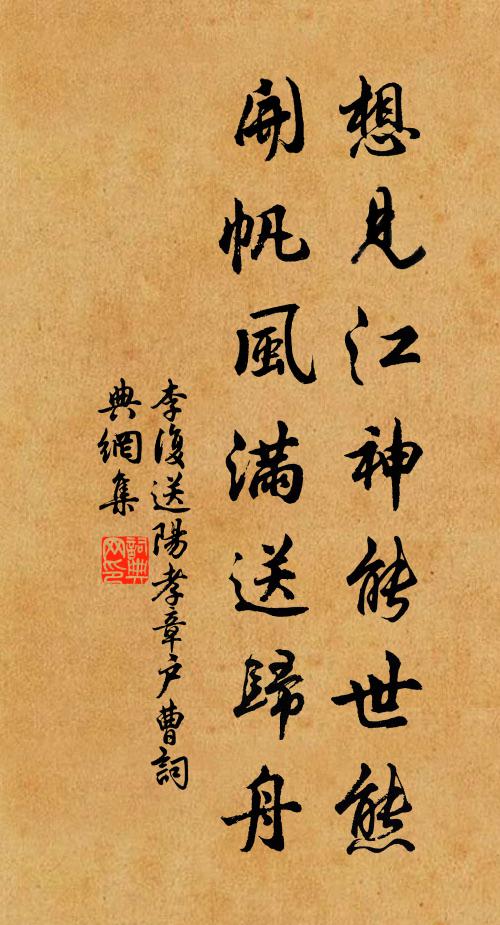 想見江神能世態
開帆風滿送歸舟
李復送陽孝章户曹詞
典網集
詞典
网印